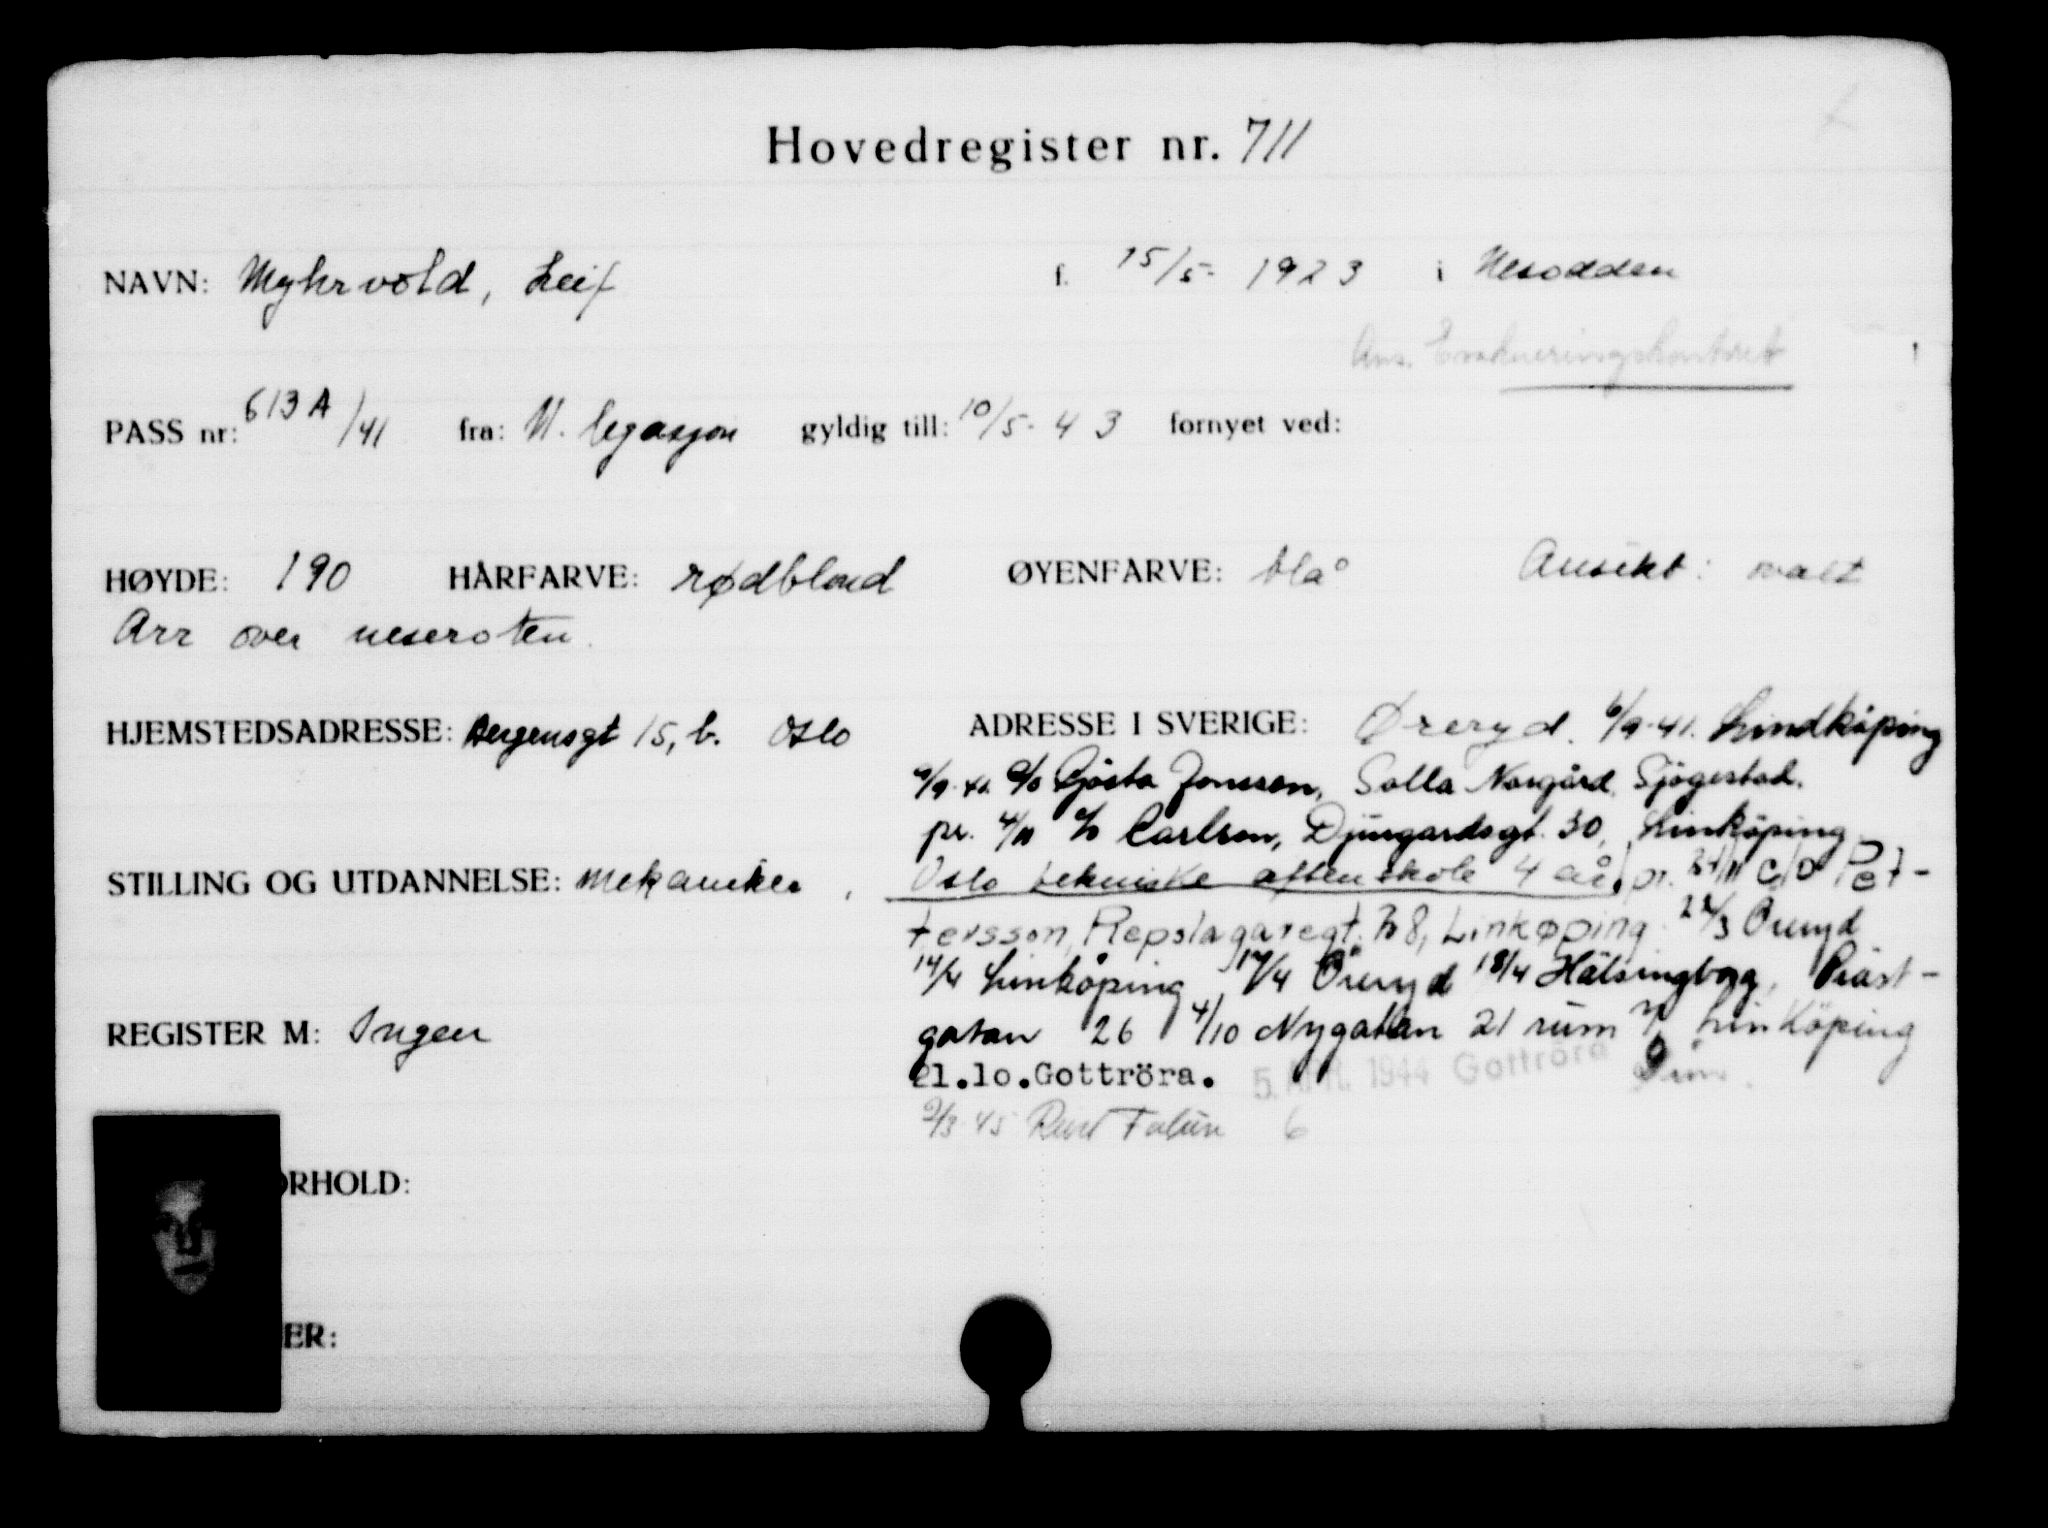 Hovedregister nr. 711
NAVN: Myhrvold, Leif f. 15/5- 1923 i Nesodden
Ans. Evakueringskontoret
PASS nr: 613A/41 fra: N. legasjon gyldig till: 10/5-43 fornyet ved:
HØYDE: 190 HÅRFARVE: rødblond ØYENFARVE: blå Ansikt: ovalt
Arr over neseroten.
HJEMSTEDSADRESSE: Bergensgt 15, b. Oslo ADRESSE I SVERIGE: Øreryd. 6/9-41. Lindköping
9/9-41. c/o Gjösta Jonssen, Solla Norgård, Sjögestad.
pr. 4/11 c/o Carlson, Djurgardsgt. 30, Linköping
STILLING OG UTDANNELSE: mekaniker, Oslo tekniske aftenskole 4 år. pr. 24/11 c/o Pet-
tersson, Repslagaregt. 38, Linkøping 22/3 Öreryd
14/4 Linköping 17/4 Öreryd 18/4 Hälsingborg, Präst-
REGISTER M: Ingen gatan 26 4/10 Nygatan 21 rum 7, Linköping
21.10.Gottröra. 5. 1944 Gottröra
2/3 45 Falun 6
ORHOLD:
ER: